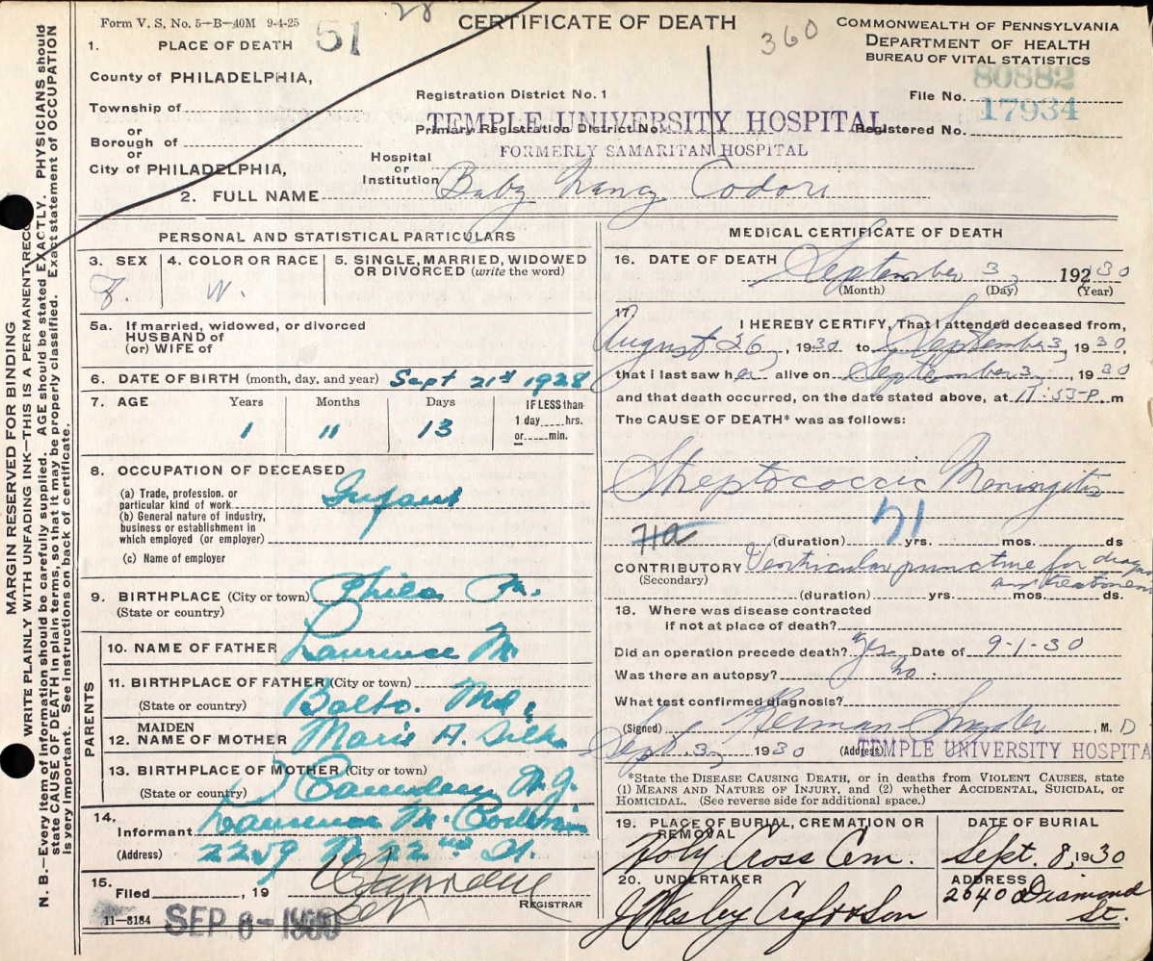 Form V. S. No. 5—B—40M 9-4-25
28
CERTIFICATE OF DEATH
360
COMMONWEALTH OF PENNSYLVANIA
DEPARTMENT OF HEALTH
BUREAU OF VITAL STATISTICS
1. PLACE OF DEATH 51
County of PHILADELPHIA,
80882
Township of
Registration District No. 1
File No. 17934
TEMPLE UNIVERSITY HOSPITAL
Primary Registration District No.
Registered No.
or
Borough of
FORMERLY SAMARITAN HOSPITAL
or
City of PHILADELPHIA,
Hospital
or
Institution
2. FULL NAME Baby Nancy Codori
PERSONAL AND STATISTICAL PARTICULARS
3. SEX 4. COLOR OR RACE 5. SINGLE, MARRIED, WIDOWED
OR DIVORCED (write the word)
F. W.
5a. If married, widowed, or divorced
HUSBAND of
(or) WIFE of
6. DATE OF BIRTH (month, day, and year) Sept 21st 1928
7. AGE Years Months Days IF LESS than
1 day hrs.
or min.
1 11 13
8. OCCUPATION OF DECEASED
(a) Trade, profession, or
particular kind of work Infant
(b) General nature of industry,
business or establishment in
which employed (or employer)
(c) Name of employer
9. BIRTHPLACE (City or town) Phila Pa.
(State or country)
PARENTS
10. NAME OF FATHER Laurence M.
11. BIRTHPLACE OF FATHER (City or town)
(State or country) Balto. Md.
12. MAIDEN
NAME OF MOTHER Marie A.
13. BIRTHPLACE OF MOTHER (City or town)
(State or country) Camden N.J.
14.
Informant Laurence M.
(Address) 2259 N 22nd St.
15.
Filed , 19
REGISTRAR
11—8184
SEP 8 - 1930
MEDICAL CERTIFICATE OF DEATH
16. DATE OF DEATH September 3, 192 30
(Month) (Day) (Year)
17.
I HEREBY CERTIFY, That I attended deceased from,
August 26, 1930 to September 3, 1930,
that I last saw her alive on September 3, 1930
and that death occurred, on the date stated above, at m
The CAUSE OF DEATH* was as follows:
Streptococcic Meningitis
71a 71
(duration) yrs. mos. ds
CONTRIBUTORY Ventricular puncture for
(Secondary) and treatment
(duration) yrs. mos. ds.
18. Where was disease contracted
if not at place of death?
Did an operation precede death? Yes Date of 9-1-30
Was there an autopsy? no.
What test confirmed diagnosis?
(Signed) Herman Snyder, M. D
Sept. 3, 1930 (Address) TEMPLE UNIVERSITY HOSPITA
*State the DISEASE CAUSING DEATH, or in deaths from VIOLENT CAUSES, state
(1) MEANS AND NATURE OF INJURY, and (2) whether ACCIDENTAL, SUICIDAL, or
HOMICIDAL. (See reverse side for additional space.)
19. PLACE OF BURIAL, CREMATION OR
REMOVAL
DATE OF BURIAL
Holy Cross Cem. Sept. 8, 1930
20. UNDERTAKER ADDRESS
J Wesley & Son 2640 Diamond
St.
MARGIN RESERVED FOR BINDING
WRITE PLAINLY WITH UNFADING INK—THIS IS A PERMANENT RECO
N. B.—Every item of information should be carefully supplied. AGE should be stated EXACTLY. PHYSICIANS should
state CAUSE OF DEATH in plain terms, so that it may be properly classified. Exact statement of OCCUPATION
is very important. See instructions on back of certificate.